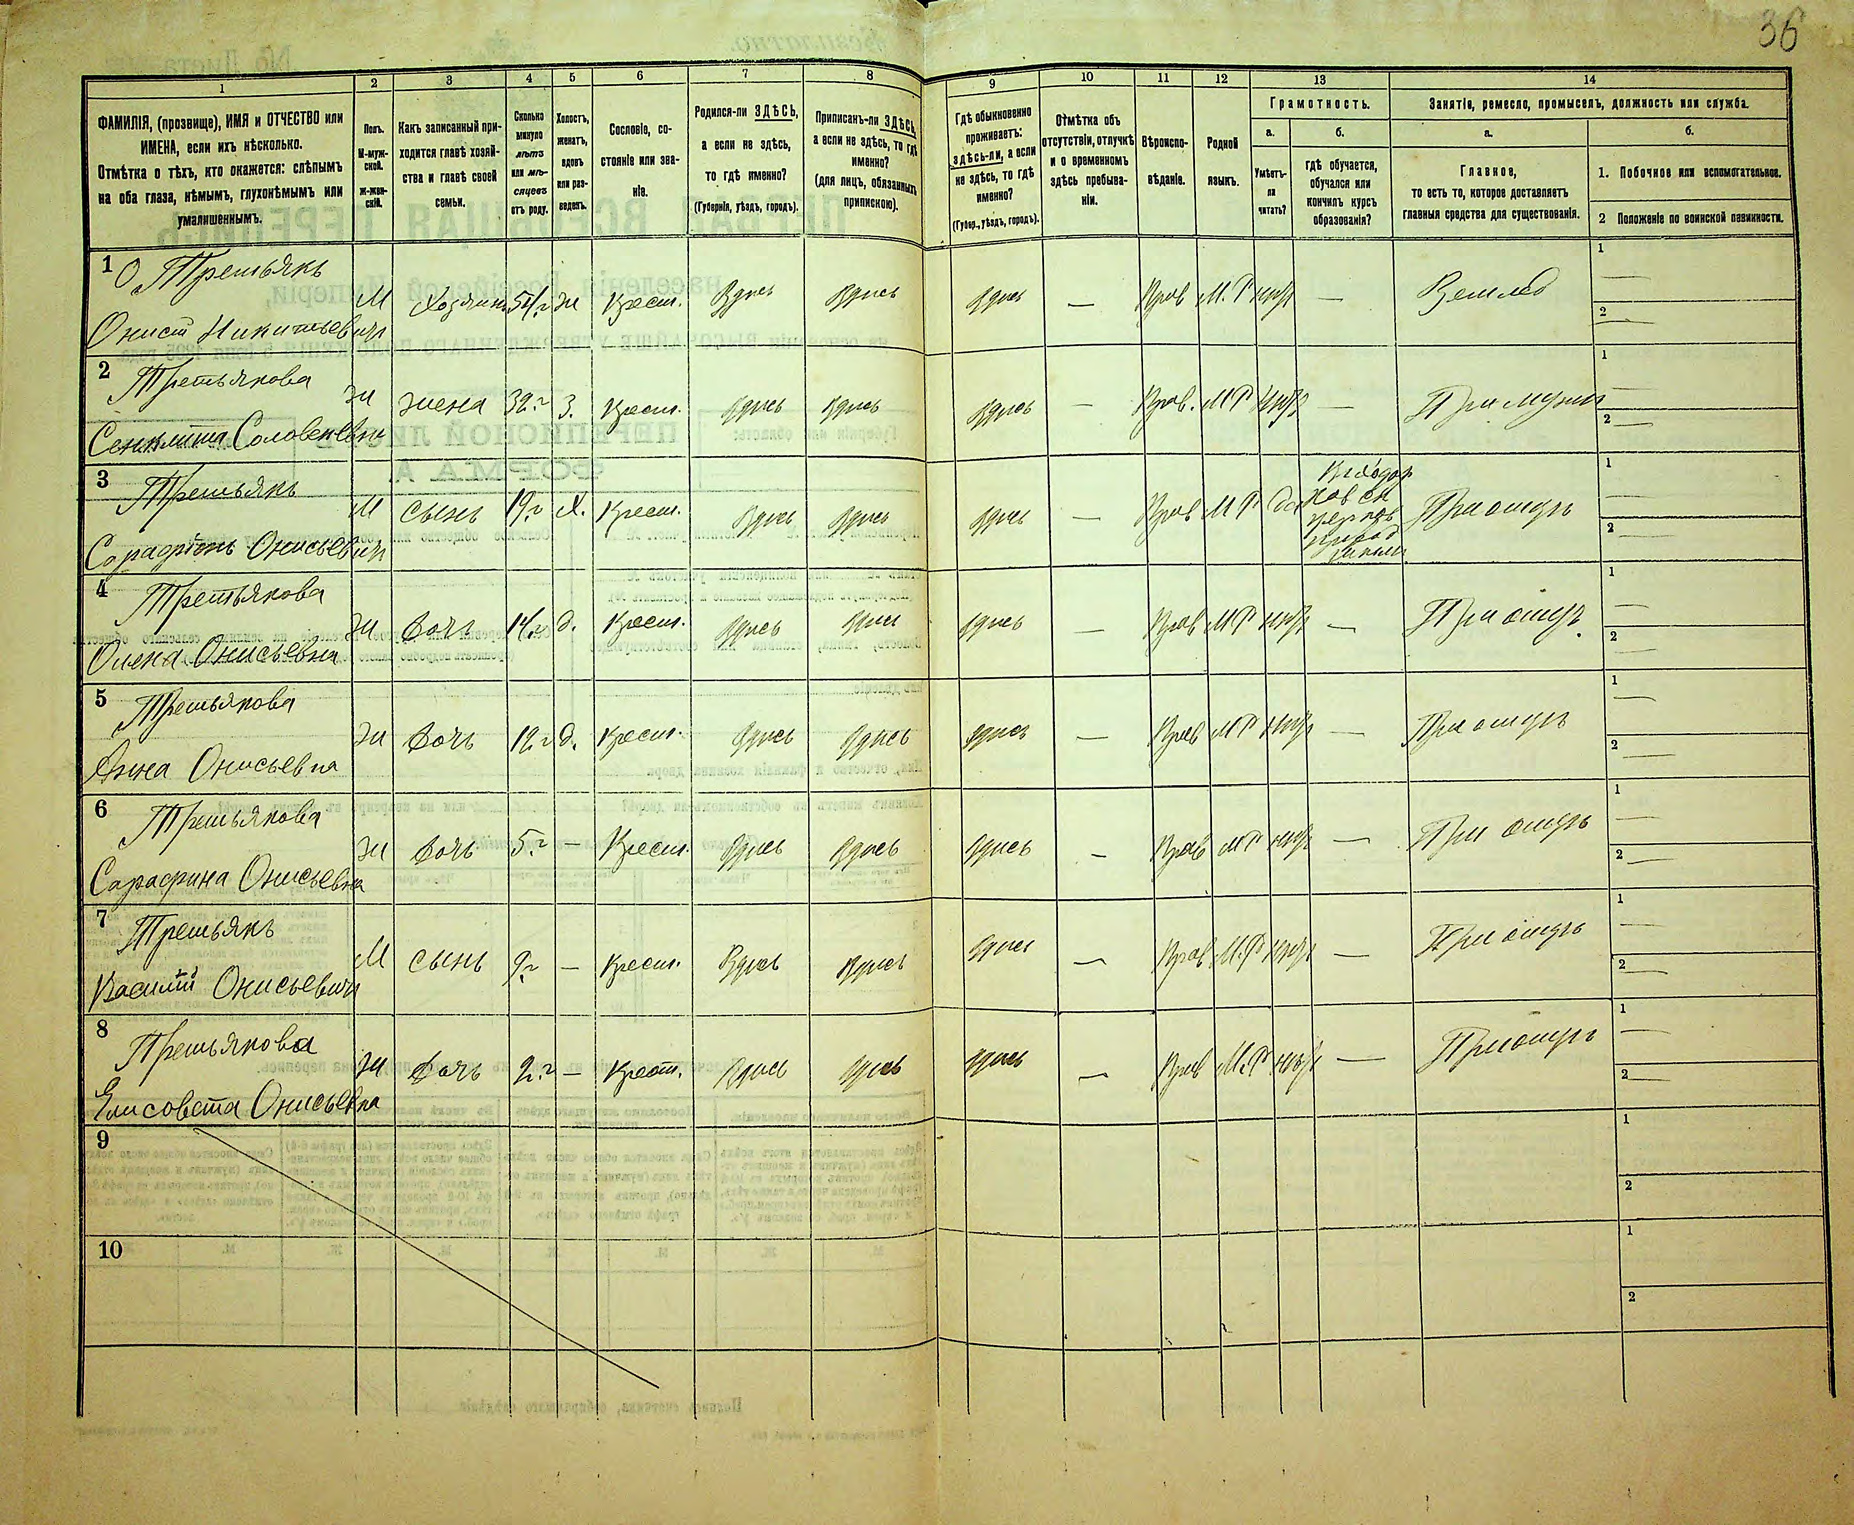 36
1
2
3
4
5
6
7
8
9
10
11
12
13
14
ФАМИЛІЯ, (прозвище), ИМЯ и ОТЧЕСТВО или
ИМЕНА, если ихъ нѣсколько.
Отмѣтка о тѣхъ, кто окажется: слѣпымъ
на оба глаза, нѣмымъ, глухонѣмымъ или
умалишеннымъ.
Полъ.
М-муж-
ской.
Ж-жен-
скій.
Какъ записанный при-
ходится главѣ хозяй-
ства и главѣ своей
семьи.
Сколько
минуло
лѣтъ
или мѣ-
сяцевъ
отъ роду.
Холостъ,
женатъ,
вдовъ
или раз-
веденъ.
Сословіе, со-
стояніе или зва-
ніе.
Родился-ли ЗДѢСЬ,
а если не здѣсь,
то гдѣ именно?
(Губернія, уѣздъ, городъ).
Приписанъ-ли ЗДѢСЬ,
а если не здѣсь, то гдѣ
именно?
(для лицъ, обязанныхъ
припискою).
Гдѣ обыкновенно
проживаетъ:
здѣсь-ли, а если
не здѣсь, то гдѣ
именно?
(Губер., уѣздъ, городъ).
Отмѣтка объ
отсутствіи, отлучкѣ
и о временномъ
здѣсь пребыва-
ніи.
Вѣроиспо-
вѣданіе.
Родной
языкъ.
Грамотность.
а.
б.
Умѣетъ-
ли
читать?
гдѣ обучается,
обучался или
кончилъ курсъ
образованія?
Занятіе, ремесло, промыселъ, должность или служба.
а.
б.
Главное,
то есть то, которое доставляетъ
главныя средства для существованія.
1. Побочное или вспомогательное.
2 Положеніе по воинской повинности.
1 О Третьякъ
Онисій Никитьевичъ
М Хозяинъ 54 г ж Крест. Здись Здись Здись — Прав М.Р нитъ — Землед
1 —
2 —
2 Третьякова
Сенклита Соловеневна
Жи жена 39 г З. Крест. Здись Здись Здись — Прав. М Р нитъ — При мужи
1 —
2 —
3 Третьякъ
Сарафіонъ Онисьевичъ
М сынъ 19 г Х. Крест. Здись Здись Здись — Прав М Р да При отцъ
1 —
2 —
4 Третьякова
Олена Онисьевна
Жи дочь 14 г д. Крест. Здись Здись Здись — Прав М Р нитъ — При отцъ
1 —
2 —
5 Третьякова
Анна Онисьевна
Жи дочь 12 г д. Крест. Здись Здись Здись — Прав М Р нитъ — При отцъ
1 —
2 —
6 Третьякова
Сарафина Онисьевна
Жи дочь 5 г — Крест. Здись Здись Здись — Прав М Р нитъ — При отцъ
1 —
2 —
7 Третьякъ
Василій Онисьевичъ
М сынъ 9 г — Крест. Здись Здись Здись — Прав М.Р нитъ — При отцъ
1 —
2 —
8 Третьякова
Елисовета Онисьевна
Жи дочь 2 г — Крест. Здись Здись Здись — Прав М.Р нитъ — При отцъ
1 —
2 —
9
1
2
10
1
2